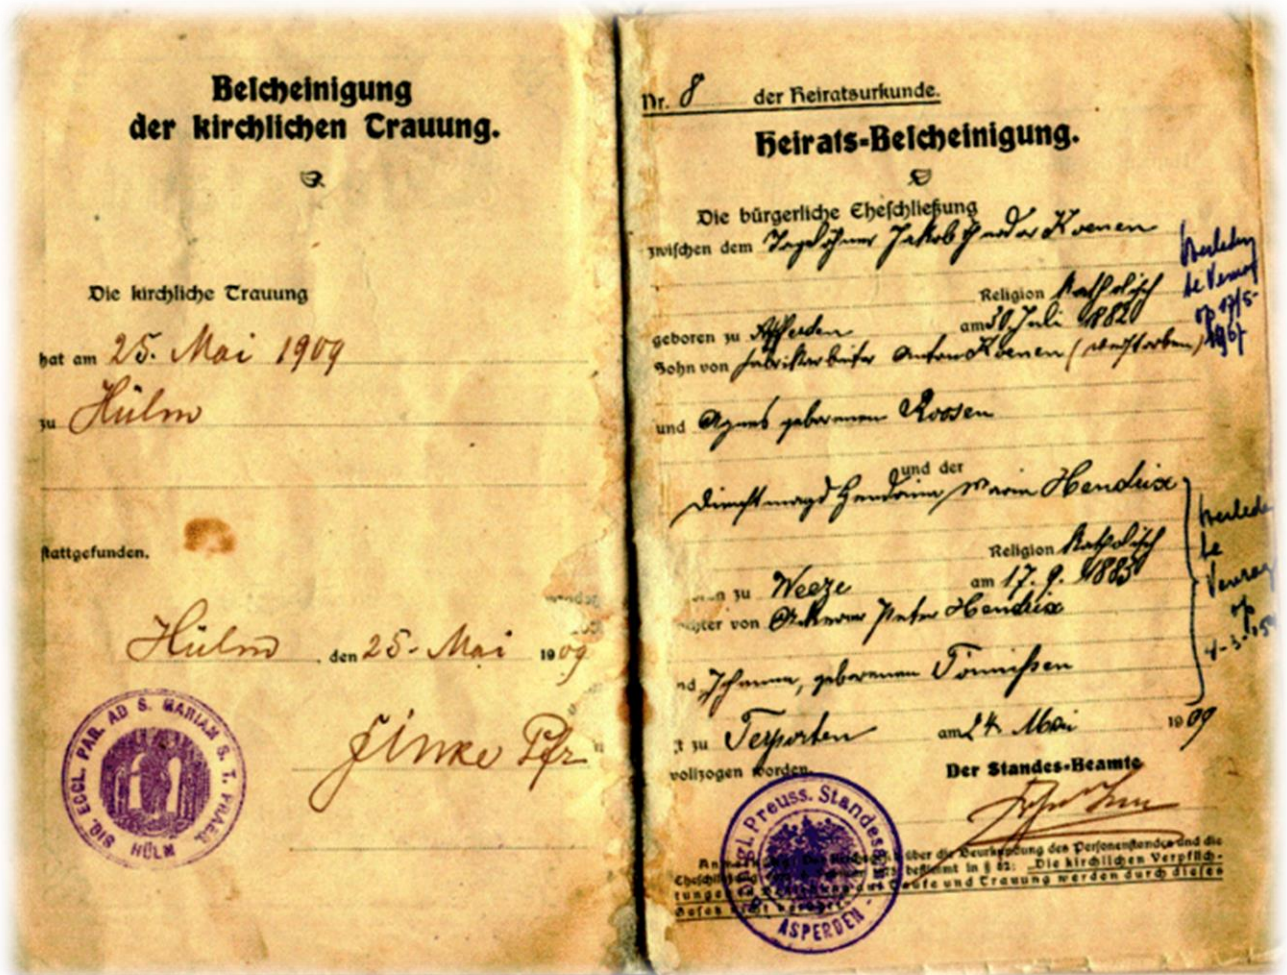 Bescheinigung
der kirchlichen Trauung.
Die kirchliche Trauung
hat am 25. Mai 1909
zu Hülm
stattgefunden.
Hülm, den 25. Mai 1909
Pfr
SIG. ECCL. PAR. AD S. MARIAM S. T. PRAES.
HÜLM
Nr. 8 der Heiratsurkunde.
Heirats-Bescheinigung.
Die bürgerliche Eheschließung
zwischen dem Tagelöhner Jakob Koenen
Religion katholisch
geboren zu Afferden am 30. Juli 1882
Sohn von Fabrikarbeiter Anton Koenen (verstorben)
und Agnes geborenen Roosen
und der
Dienstmagd Hendrina Maria Hendrix
Religion katholisch
zu Weeze am 17. 9. 1883
von Ackerer Peter Hendrix
Johanna, geborenen Tönnißen
zu am 24. Mai 1909
vollzogen worden.
Der Standes-Beamte
Preuss. Standesamt
ASPERDEN
über die Beurkundung des Personenstandes und die
bestimmt in § 82: Die kirchlichen Verpflich-
Taufe und Trauung werden durch dieses
Gesetz nicht
overleden
te Venray
op 17/5-
overleden
te
Venray
op
4-3-